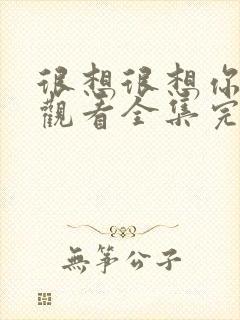 很想很想你
觀看全集完
無筝公子